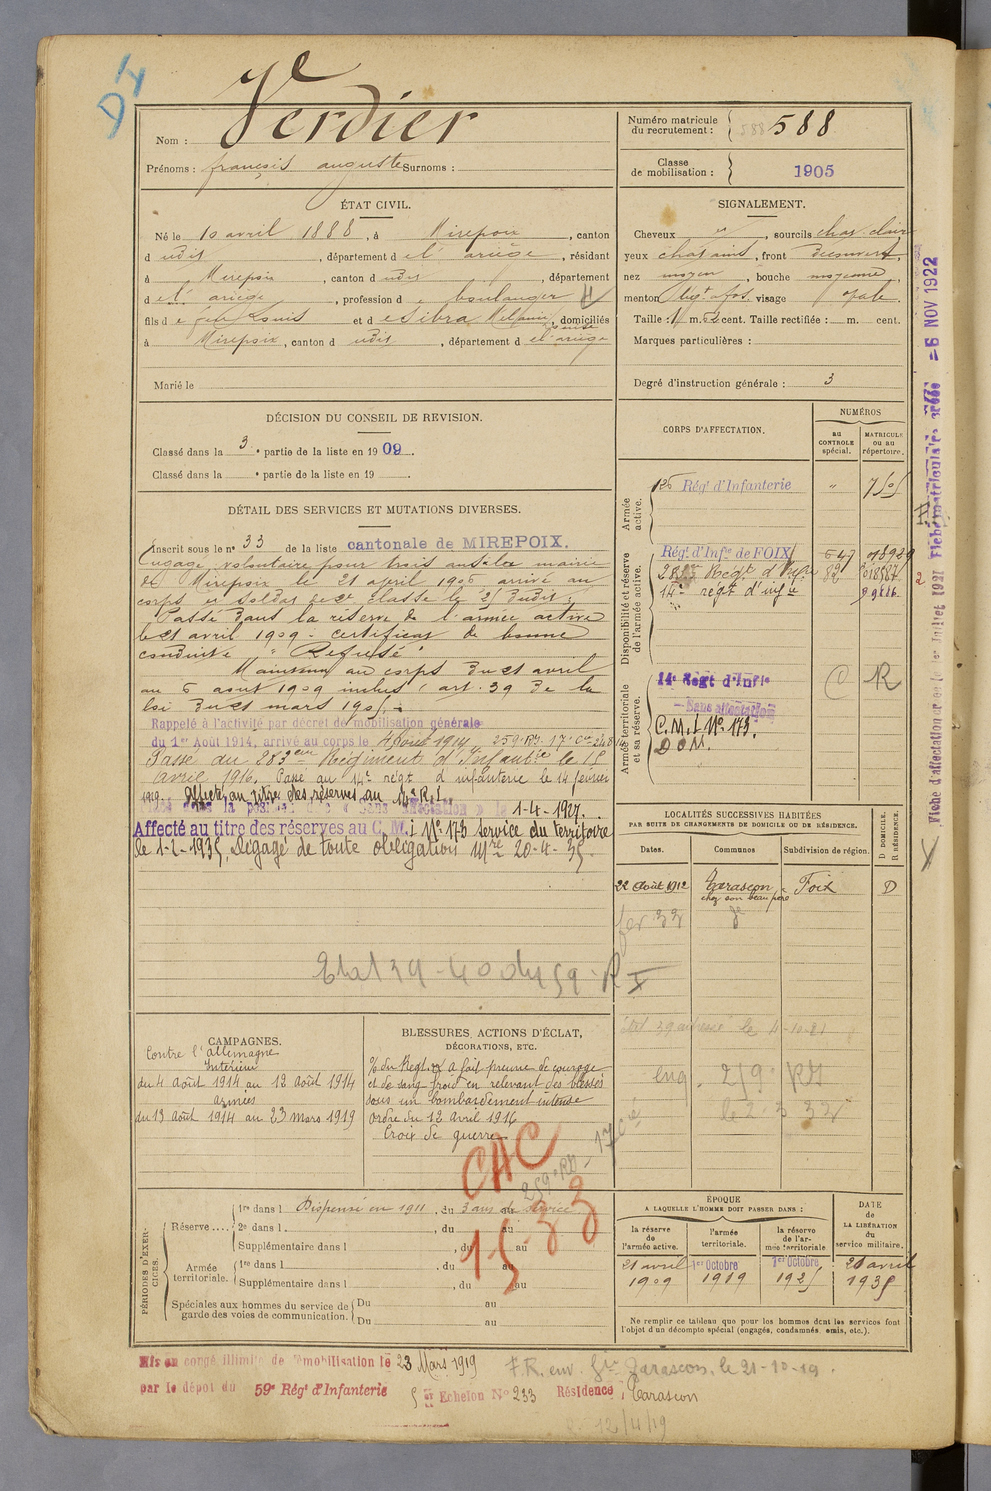 Verdier
Nom :
Prénoms : françois auguste Surnoms :
Numéro matricule du recrutement : 588
Classe de mobilisation : 1905
ÉTAT CIVIL.
Né le 10 avril 1888, à Mirepoix, canton
d udit, département d e l'ariège, résidant
à Mirepoix, canton d udit, département
d e l'ariège, profession d e boulanger
fils d e feu Louis et d e Sibra Mélanie Louise, domiciliés
à Mirepoix, canton d udit, département d e l'ariège
Marié le
SIGNALEMENT.
Cheveux , sourcils chat. clair
yeux chatains, front découvert,
nez moyen, bouche moyenne,
menton visage ovale.
Taille : 1 m. cent. Taille rectifiée : m. cent.
Marques particulières :
Degré d'instruction générale : 3
DÉCISION DU CONSEIL DE REVISION.
Classé dans la 3e partie de la liste en 1909.
Classé dans la e partie de la liste en 19 .
DÉTAIL DES SERVICES ET MUTATIONS DIVERSES.
Inscrit sous le n° 33 de la liste cantonale de MIREPOIX.
Engagé volontaire pour trois ans à la mairie
de Mirepoix le 21 avril 1906 arrivé au
corps et soldat de 2e classe le 21 dudit.
Passé dans la réserve de l'armée active
le 21 avril 1909 - certificat de bonne
conduite "Refusé"
Maintenu au corps du 21 avril
au 6 août 1909 inclus art. 39 de la
loi du 21 mars 1905.
Rappelé à l'activité par décret de mobilisation générale
du 1er Août 1914, arrivé au corps le 4 août 1914 259e RI. 17e Cie
Passé au 283eme Régiment d'Infantie le 15
avril 1916. Passé au 14e régt d'infanterie le 14 février
1919. Affecté au titre des réserves au 14e R.I.
la position dite "Sans affectation" le 1-4-1927.
Affecté au titre des réserves au C.M.I N° 173 service du territoire
le 1-2-1935. Dégagé de toute obligation Mre 20-4-35.
CORPS D'AFFECTATION.
NUMÉROS
au CONTROLE spécial.
MATRICULE ou au répertoire.
Armée active.
126 Rég! d'Infanterie " 7505
Disponibilité et réserve de l'armée active.
Rég! d'Infie de FOIX 647
283 Régt d'Infie 82 018587
14e régt d'infie
Armée territoriale et sa réserve.
14e Régt d'Infie C R
Sans affectation
C.M.I N° 173.
D.O.M.
LOCALITÉS SUCCESSIVES HABITÉES
PAR SUITE DE CHANGEMENTS DE DOMICILE OU DE RÉSIDENCE.
Dates. Communes Subdivision de région. D DOMICILE. R RÉSIDENCE.
22 Août 1912 Tarascon chez son beau père Foix D
fer 33 de
Etat 39-40 du 59e R I
eng. 259e RI
le 2.3.33
CAMPAGNES.
Contre l'allemagne
Intérieur
du 4 août 1914 au 12 août 1914
armées
du 13 août 1914 au 23 mars 1919
BLESSURES, ACTIONS D'ÉCLAT,
DÉCORATIONS, ETC.
% du Régt. a fait preuve de courage
et de sang froid en relevant des blessés
sous un bombardement intense
Ordre du 12 avril 1916
Croix de guerre
CAC
1533
259e RI - 17e Cie
PÉRIODES D'EXERCICES.
Réserve....
1re dans l Dispensé en 1911, du 3 ans de service
2e dans l , du au
Supplémentaire dans l , du au
Armée territoriale.
1re dans l , du au
Supplémentaire dans l , du au
Spéciales aux hommes du service de garde des voies de communication.
Du au
Du au
ÉPOQUE
A LAQUELLE L'HOMME DOIT PASSER DANS :
la réserve de l'armée active.
l'armée territoriale.
la réserve de l'armée territoriale
DATE de LA LIBÉRATION du service militaire.
21 avril 1909
1er Octobre 1919
1er Octobre 1925
21 avril 1935
Ne remplir ce tableau que pour les hommes dont les services font
l'objet d'un décompte spécial (engagés, condamnés, omis, etc.).
Mis en congé illimité de démobilisation le 23 Mars 1919
par le dépôt du 59e Rég! d'Infanterie
5e Echelon N° 233 Résidence : Tarascon
F.R. env Gie Tarascon, le 21-10-19.
12/4/19
Fiche d'affectation Juillet 1921 Fiche matriculaire créée - 6 NOV 1922